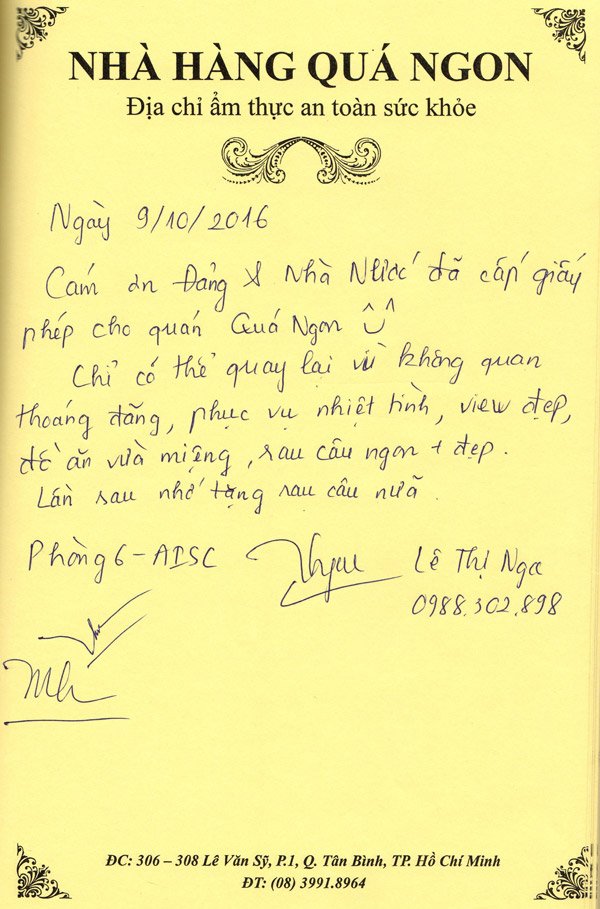 NHÀ HÀNG QUÁ NGON
Địa chỉ ẩm thực an toàn sức khỏe
Ngày 9/10/2016
Cám ơn Đảng & Nhà Nước đã cấp giấy
phép cho quán Quá Ngon
Chỉ có thể quay lại vì không quan
thoáng đãng, phục vụ nhiệt tình, view đẹp,
đồ ăn vừa miệng, rau câu ngon + đẹp.
Lần sau nhớ tặng rau câu nữa.
Phòng 6 - AISC Lê Thị Nga
0988.302.898
ĐC: 306 – 308 Lê Văn Sỹ, P.1, Q. Tân Bình, TP. Hồ Chí Minh
ĐT: (08) 3991.8964